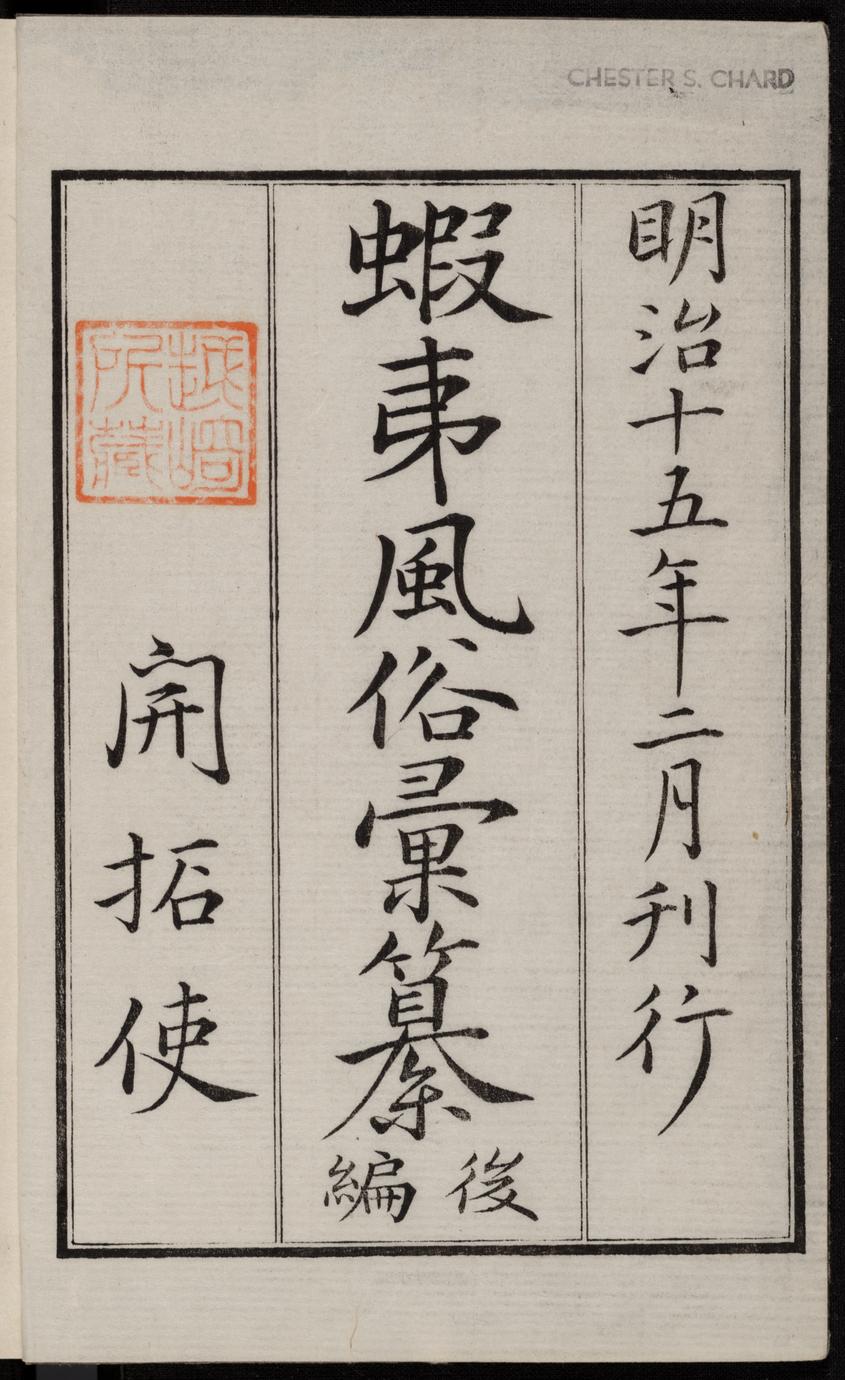 CHESTER S. CHARD
明治十五年二月刊行
蝦夷風俗彙纂 後編
開拓使
越﨑所藏